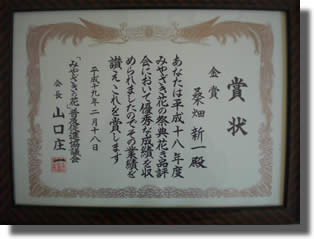 賞状
金賞
桑畑新一殿
あなたは平成十八年度
みやざき花の祭典花き品評
会において優秀な成績を収
められましたのでその業績を
讃えこれを賞します
平成十九年二月十八日
「みやざきの花」普及促進協議会
会長 山口庄一